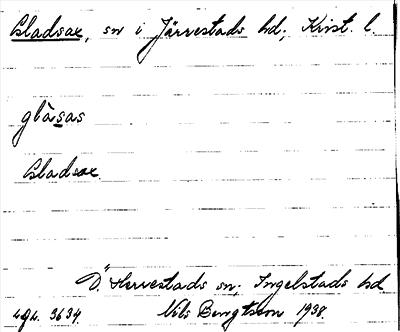 Gladsax, sn i Järrestads hd, Krist. l.
glàsas
Gladsax.
Ö. Herrestads sn; Ingelstads hd
3634. Nils Bengtsson 1938.